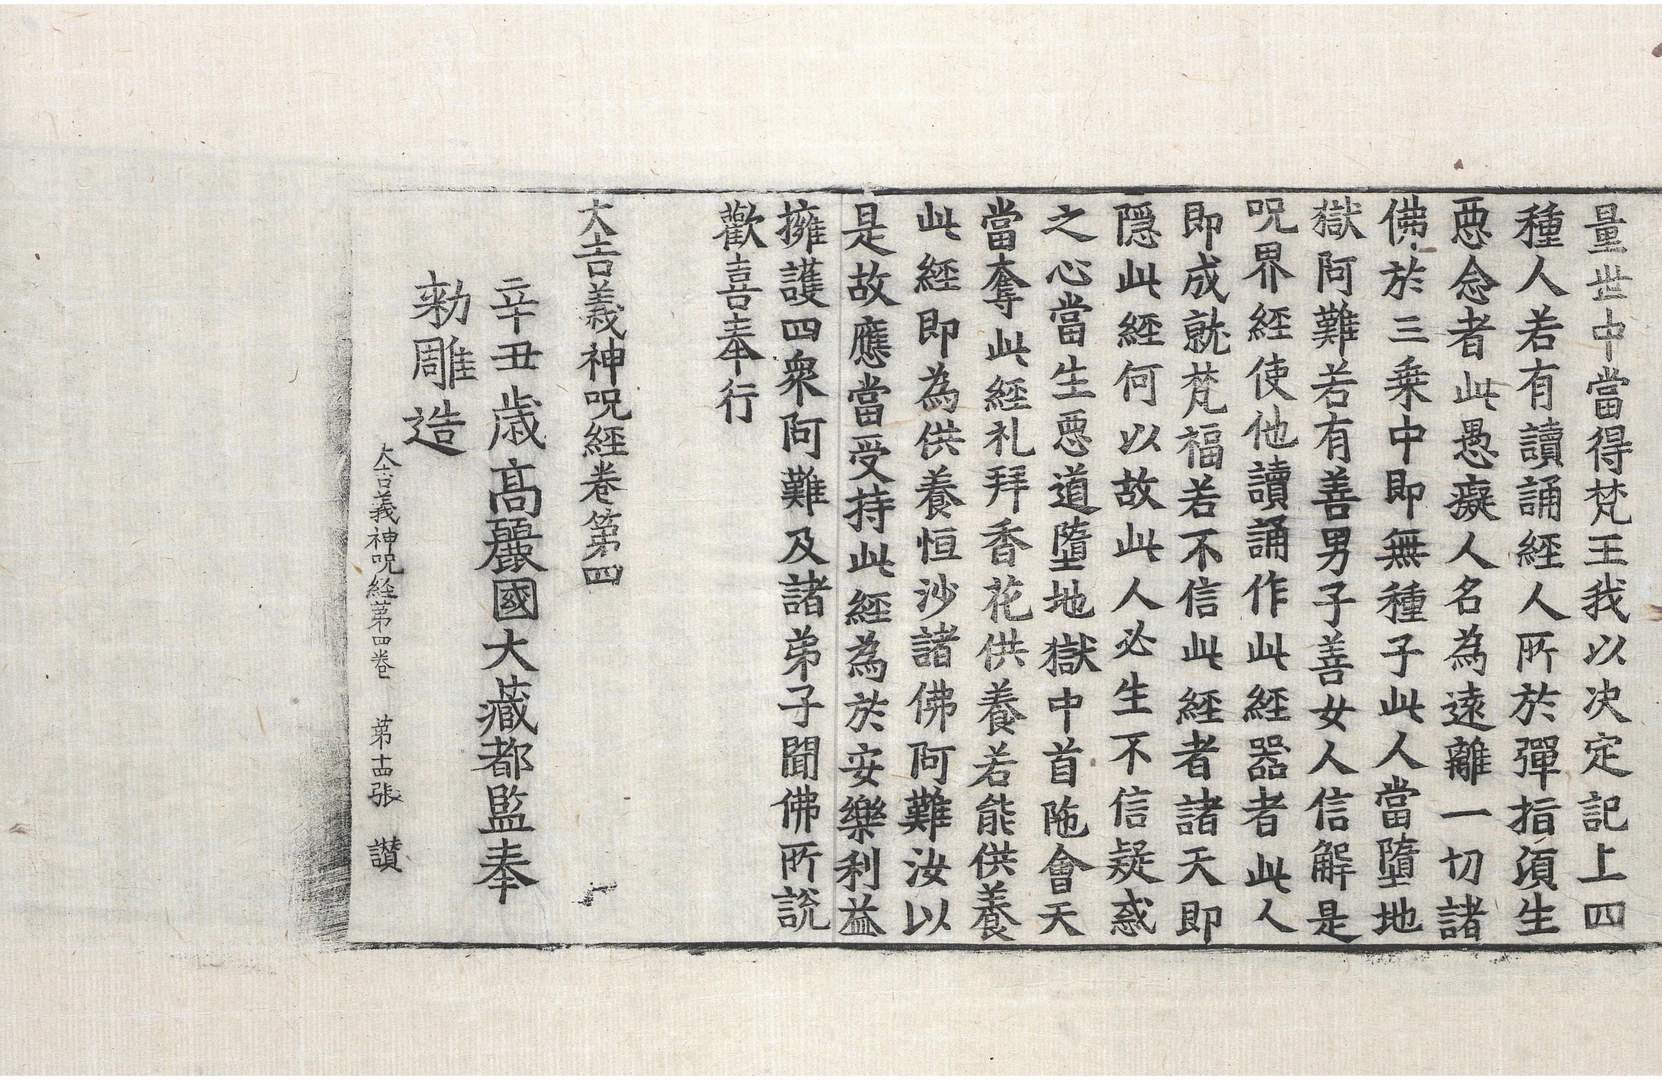 量世中當得梵王我以決定記上四
種人若有讀誦經人所於彈指湏生
惡念者此愚癡人名為遠離一切諸
佛於三乗中即無種子此人當墮地
獄阿難若有善男子善女人信解是
呪界經使他讀誦作此經器者此人
即成就梵福若不信此經者諸天即
隱此經何以故此人必生不信疑惑
之心當生惡道墮地獄中首陁會天
當奪此經礼拜香花供養若能供養
此經即為供養恒沙諸佛阿難汝以
是故應當受持此經為於安樂利益
擁護四衆阿難及諸弟子聞佛所說
歡喜奉行
大吉義神呪經卷第四
辛丑歲高麗國大藏都監奉
勑雕造
大吉義神呪經第四卷 第十四張 讃